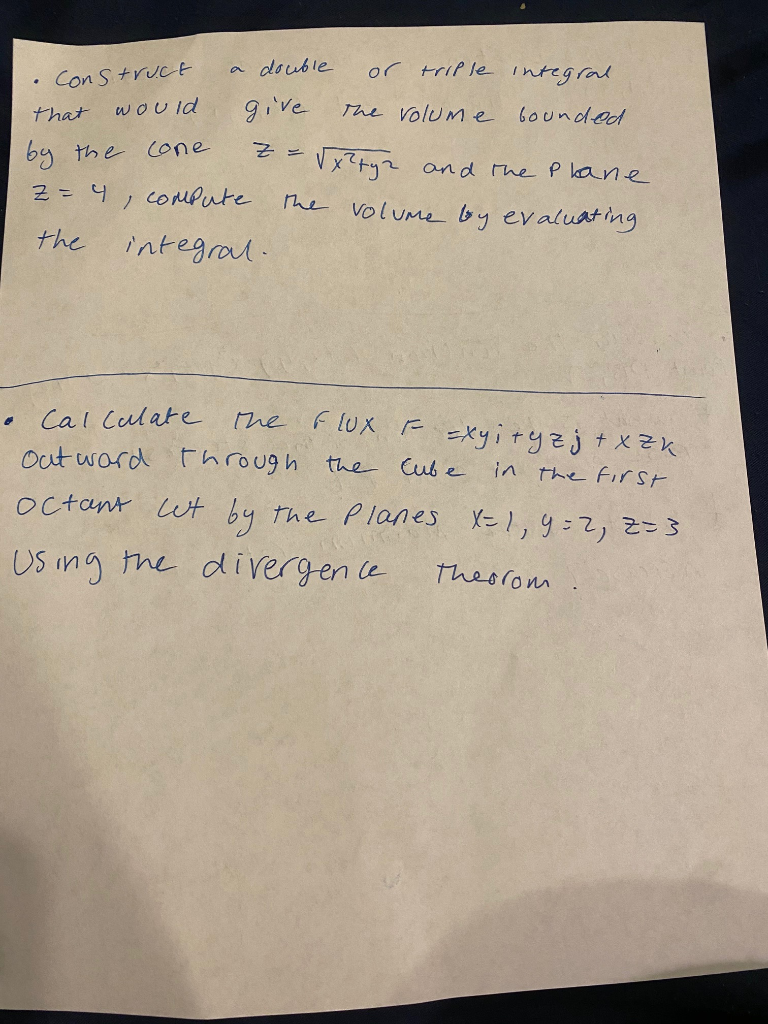 • Construct a double or triple integral
that would give the volume bounded
by the cone z = √x²+y² and the plane
z = 4, compute the volume by evaluating
the integral.
• Calculate the Flux F =xyi+yzj+xzk
outward through the cube in the first
octant cut by the planes x=1, y=2, z=3
Using the divergence theorom.